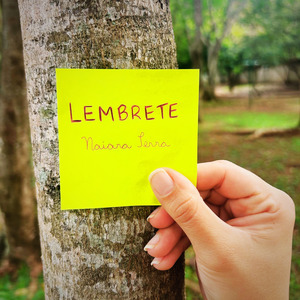 LEMBRETE
Naiara Terra